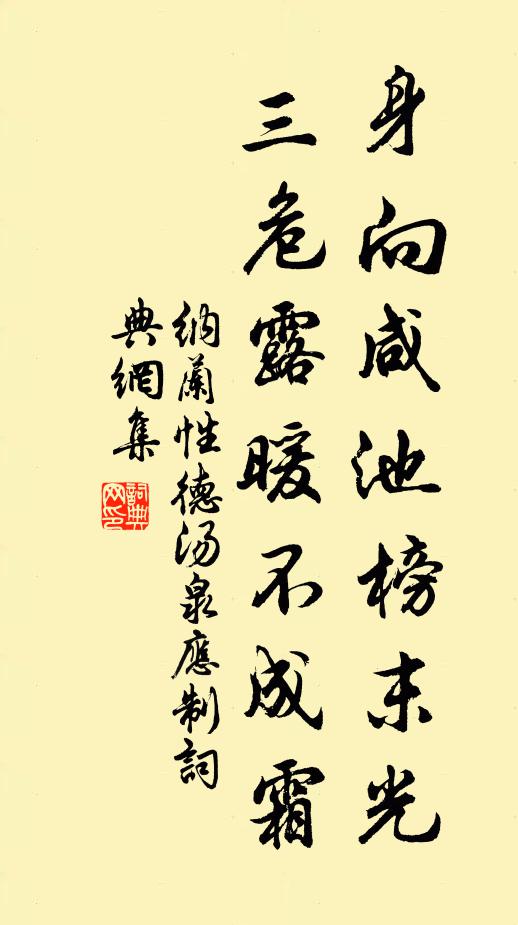 身向咸池榜末光
三危露暖不成霜
納蘭性德汤泉應制詞
典網集
詞典
网印